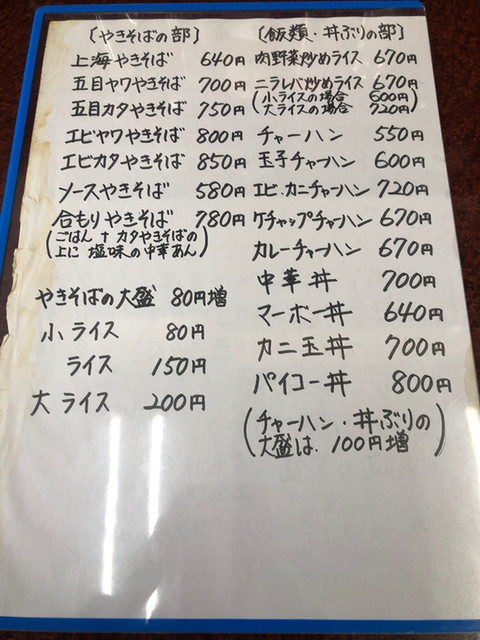 〔やきそばの部〕
上海やきそば 640円
五目ヤワやきそば 700円
五目カタやきそば 750円
エビヤワやきそば 800円
エビカタやきそば 850円
ソースやきそば 580円
合もりやきそば 780円
(ごはん † カタやきそばの
上に 塩味の中華あん)
やきそばの大盛 80円増
小 ライス 80円
ライス 150円
大 ライス 200円
〔飯類・丼ぶりの部〕
肉野菜炒めライス 670円
ニラレバ炒めライス 670円
(小ライスの場合 600円
大ライスの場合 720円)
チャーハン 550円
玉子チャーハン 600円
エビ・カニチャーハン 720円
ケチャップチャーハン 670円
カレーチャーハン 670円
中華丼 700円
マーボー丼 640円
カニ玉丼 700円
パイコー丼 800円
(チャーハン・丼ぶりの
大盛は、100円増)